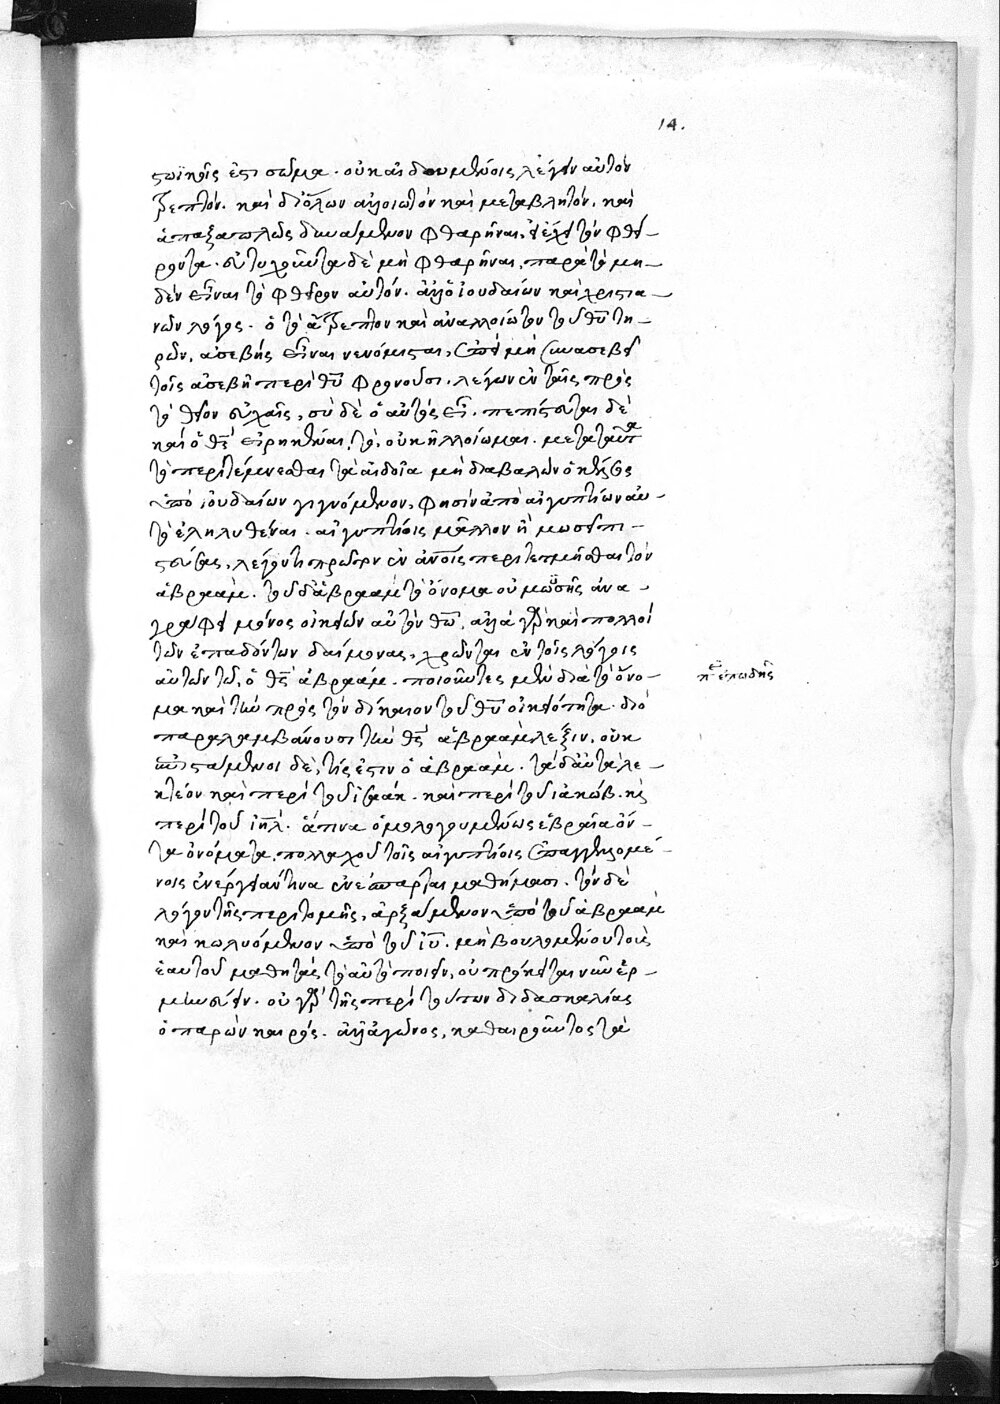 14.
στωϊκοῖς ἐστι σῶμα. οὐκ αἰδουμένοις λέγειν αὐτὸν
τρεπτόν. καὶ διόλων ἀλλοιωτὸν καὶ μεταβλητόν. καὶ
ἁπαξαπλῶς δυνάμενον φθαρῆναι, εἰ ἔχει τὸν φθεί-
ροντα. εὐτυχοῦντα δὲ μὴ φθαρῆναι, παρὰ τὸ μη-
δὲν εἶναι τὸ φθεῖρον αὐτόν. ἀλλ' ὁ ἰουδαίων καὶ χριστια-
νῶν λόγος. ὁ τὸ ἄτρεπτον καὶ ἀναλλοίωτον τοῦ θῦ τη-
ρῶν, ἀσεβὴς εἶναι νενόμισται, ἐπεὶ μὴ συνασεβεῖ
τοῖς ἀσεβῆ περὶ θῦ φρονοῦσι. λέγων ἐν ταῖς πρὸς
τὸ θεῖον εὐχαῖς, σὺ δὲ ὁ αὐτὸς εἶ. πεπίστευται δὲ
καὶ ὁ θς εἰρηκέναι, τὸ, οὐκ ἠλλοίωμαι. μετὰ ταῦτα
τὸ περιτέμνεσθαι τὰ αἰδοῖα μὴ διαβαλὼν ὁ κέλσος
ὑπὸ ἰουδαίων γιγνόμενον, φησὶν ἀπὸ αἰγυπτίων αὐ-
τὸ ἐληλυθέναι. αἰγυπτίοις μᾶλλον ἢ μωσεῖ πι-
στεύσας, λέγοντι πρῶτον ἐν ἀνοῖς περιτετμῆσθαι τὸν
ἀβραάμ. τοῦ δ' ἀβραὰμ τὸ ὄνομα οὐ μωϋσῆς ἀνα-
γράφει μόνος οἰκειῶν αὐτὸν θῶ, ἀλλὰ γὰρ καὶ πολλοὶ
τῶν ἐπαδόντων δαίμονας, χρῶνται ἐν τοῖς λόγοις
αὐτῶν τῶ, ὁ θς ἀβραάμ. ποιοῦντες μὲν διὰ τὸ ὄνο-
μα καὶ τὴν πρὸς τὸν δίκαιον τοῦ θῦ οἰκειότητα. διὸ
παραλαμβάνουσι τὴν θς ἀβραὰμ λέξιν, οὐκ
ἐπιστάμενοι δὲ, τίς ἐστιν ὁ ἀβραάμ. τὰ δ' αὐτὰ λε-
κτέον καὶ περὶ τοῦ ἰσαάκ. καὶ περὶ τοῦ ἰακώβ. κς
περὶ τοῦ ιηλ. ἅτινα ὁμολογουμένως ἑβραῖα ὄν-
τα ὀνόματα, πολλαχοῦ τοῖς αἰγυπτίοις ἐπαγγελλομέ-
νοις ἐνέργειάν τινα ἐνέσπαρται μαθήμασι. τὸν δὲ
λόγον τῆς περιτομῆς, ἀρξάμενον ὑπὸ τοῦ ἀβραὰμ
καὶ κωλυόμενον ὑπὸ τοῦ ιῦ. μὴ βουλομένου τοὺς
ἑαυτοῦ μαθητὰς τὸ αὐτὸ ποιεῖν, οὐ πρόκειται νῦν ἑρ-
μηνεύειν. οὐ γὰρ τῆς περὶ τούτων διδασκαλίας
ὁ παρὼν καιρὸς. ἀλλ' ἀγῶνος, καθαιροῦντος τὰ